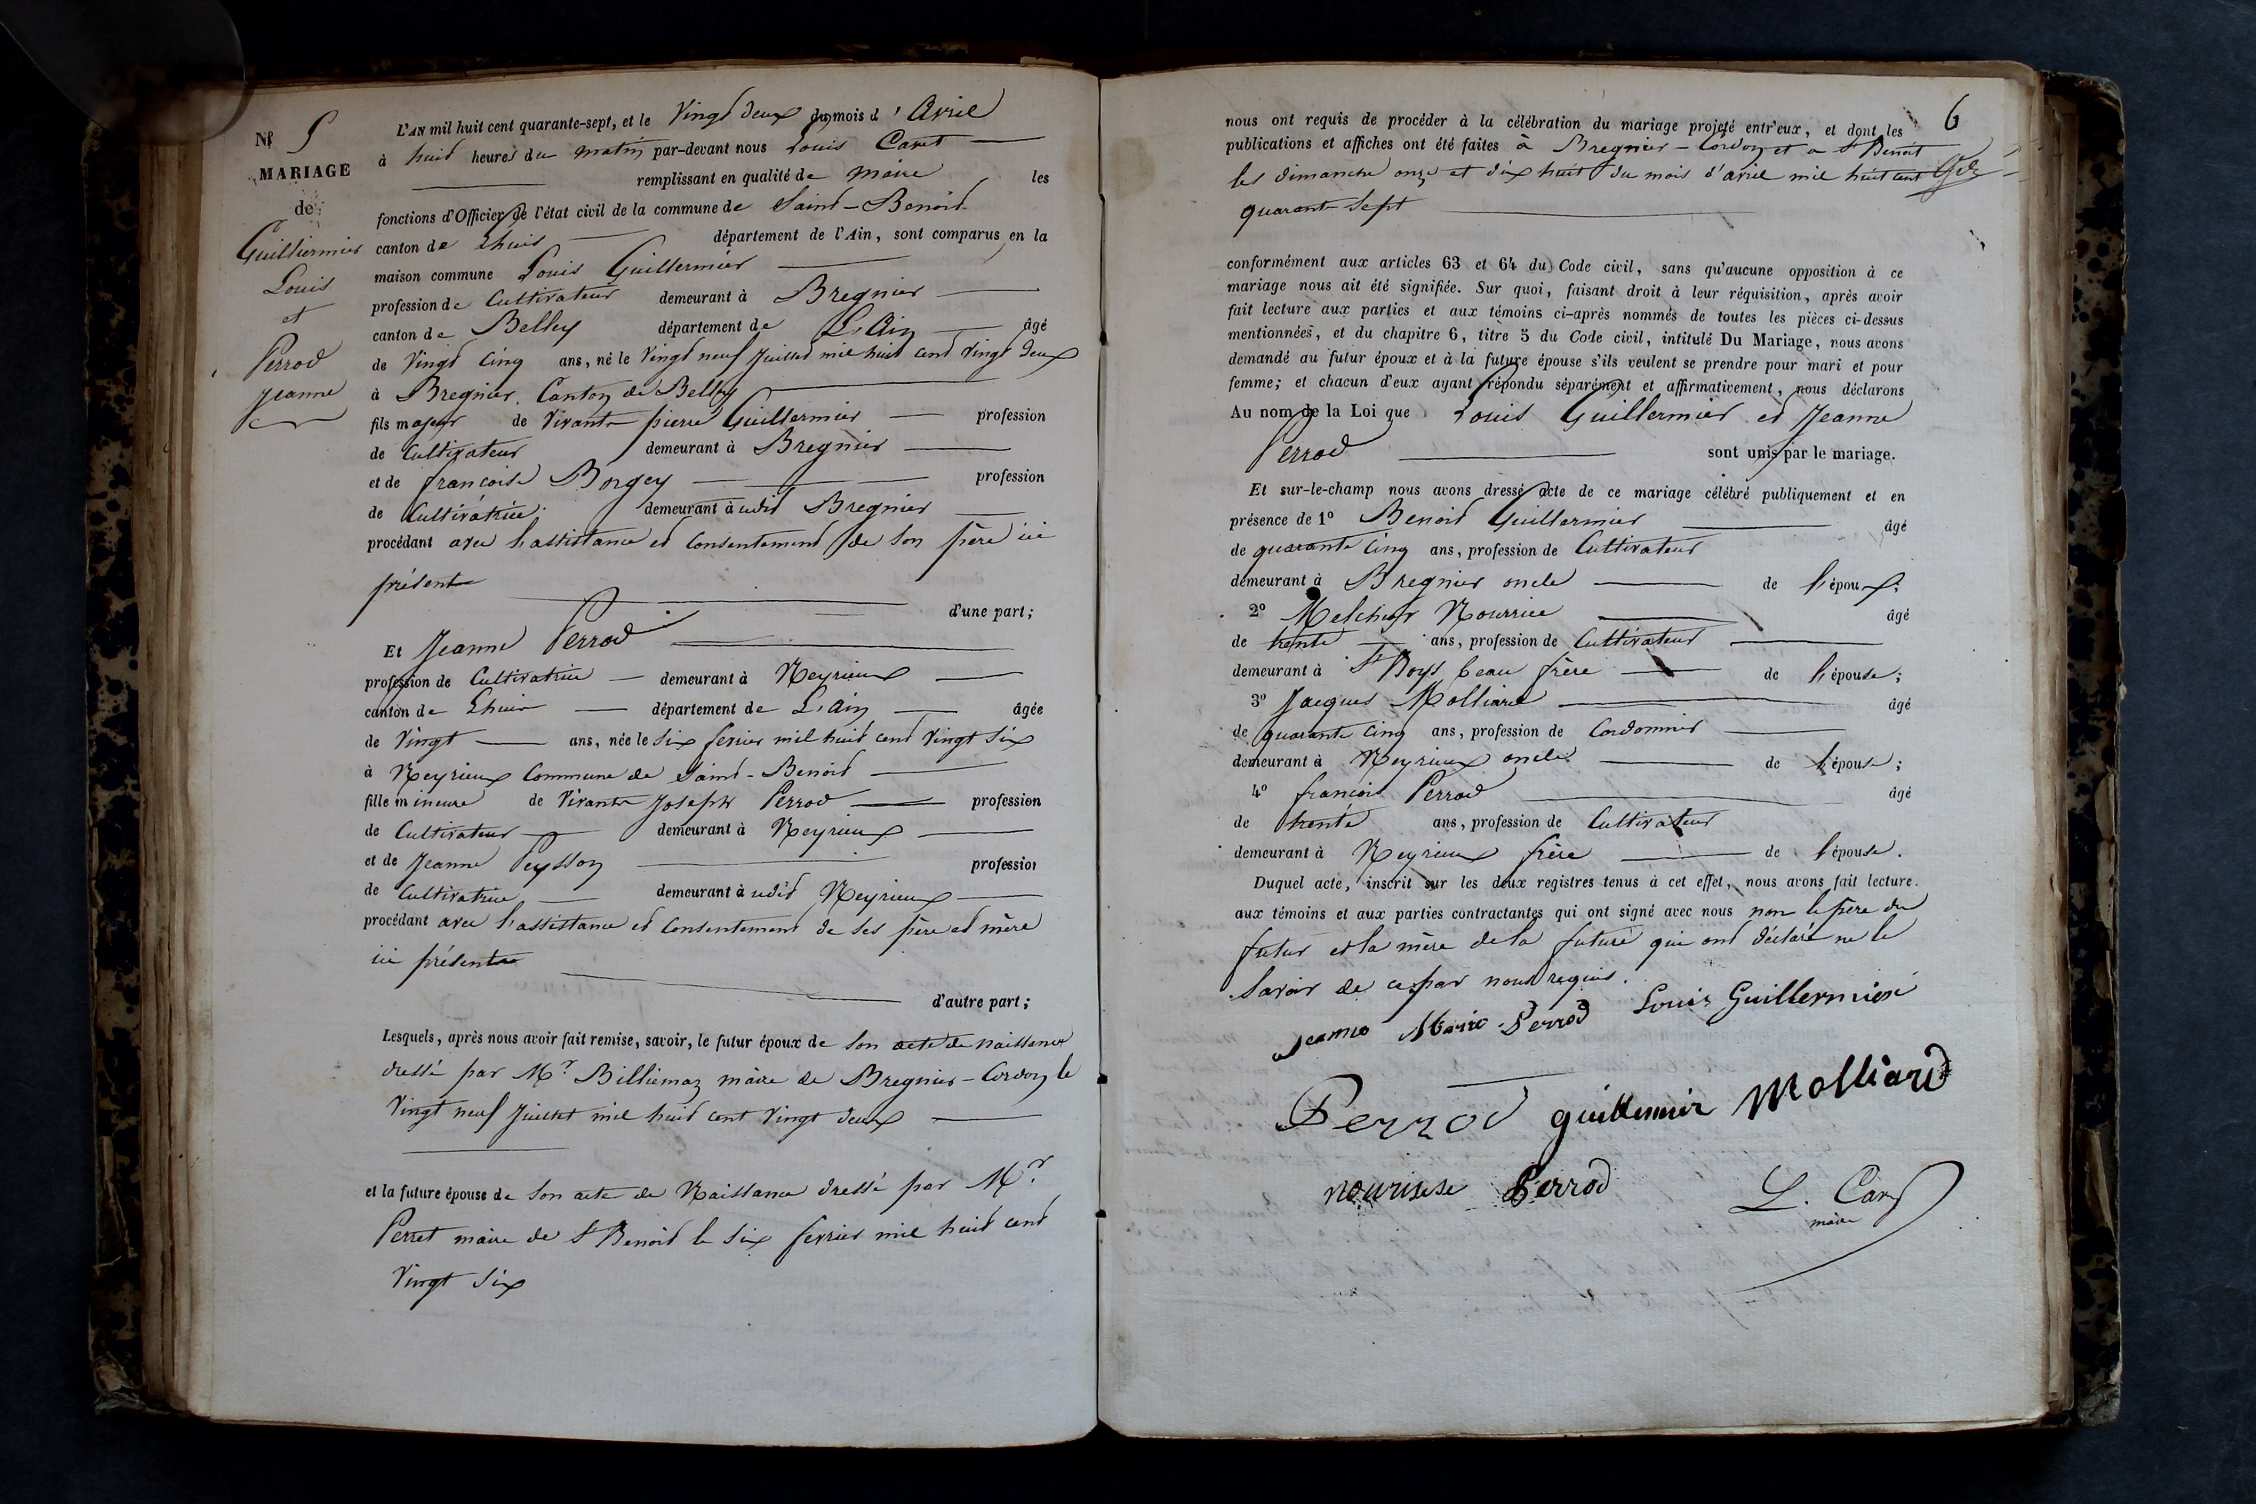 N° 5
MARIAGE
de
Guilliermier
Louis
et
Perrod
Jeanne
L'AN mil huit cent quarante-sept, et le Vingt deux du mois d'Avril
à huit heures du matin par-devant nous Louis Caret
remplissant en qualité de Maire les
fonctions d'Officier de l'état civil de la commune de Saint-Benoit
canton de Lhuis département de l'Ain, sont comparus en la
maison commune Louis Guillermier
profession de Cultivateur demeurant à Bregnier
canton de Belley département de L'Ain âgé
de Vingt Cinq ans, né le Vingt neuf Juillet mil huit cent Vingt deux
à Bregnier Canton de Belley
fils majeur de Vivants pierre Guillermier profession
de Cultivateur demeurant à Bregnier
et de françoise Borgey profession
de Cultivatrice demeurant à udit Bregnier
procédant avec l'assistance et Consentement de son père ici
présent
d'une part;
Et Jeanne Perrod
profession de Cultivatrice demeurant à Neyrieux
canton de Lhuis département de L'Ain âgée
de Vingt ans, née le six fevrier mil huit cent Vingt Six
à Neyrieux Commune de Saint-Benoit
fille mineure de Vivants Joseph Perrod profession
de Cultivateur demeurant à Neyrieux
et de Jeanne Peysson profession
de Cultivatrice demeurant à udit Neyrieux
procédant avec l'assistance et Consentement de ses père et mère
ici présents
d'autre part;
Lesquels, après nous avoir fait remise, savoir, le futur époux de son acte de naissance
dressé par Mr Billiemaz maire de Bregnier-Cordon le
Vingt neuf Juillet mil huit cent Vingt deux
et la future épouse de son acte de Naissance dressé par Mr
Perret maire de St Benoit le six fevrier mil huit cent
Vingt Six
6
nous ont requis de procéder à la célébration du mariage projeté entr'eux, et dont les
publications et affiches ont été faites à Bregnier-Cordon et a St Benoit
les dimanche onze et dix huit du mois d'avril mil huit cent
quarante Sept
conformément aux articles 63 et 64 du Code civil, sans qu'aucune opposition à ce
mariage nous ait été signifiée. Sur quoi, faisant droit à leur réquisition, après avoir
fait lecture aux parties et aux témoins ci-après nommés de toutes les pièces ci-dessus
mentionnées, et du chapitre 6, titre 5 du Code civil, intitulé Du Mariage, nous avons
demandé au futur époux et à la future épouse s'ils veulent se prendre pour mari et pour
femme; et chacun d'eux ayant répondu séparément et affirmativement, nous déclarons
Au nom de la Loi que Louis Guillermier et Jeanne
Perrod sont unis par le mariage.
Et sur-le-champ nous avons dressé acte de ce mariage célébré publiquement et en
présence de 1° Benoit Guillermier âgé
de quarante Cinq ans, profession de Cultivateur
demeurant à Bregnier oncle de l'époux;
2° Melchior Nourrice âgé
de trente ans, profession de Cultivateur
demeurant à St Boys beau frère de l'épouse;
3° Jacques Molliard âgé
de quarante Cinq ans, profession de Cordonnier
demeurant à Neyrieux oncle de l'épouse;
4° françois Perrod âgé
de trente ans, profession de Cultivateur
demeurant à Neyrieux frère de l'épouse.
Duquel acte, inscrit sur les deux registres tenus à cet effet, nous avons fait lecture
aux témoins et aux parties contractantes qui ont signé avec nous non le père du
futur et la mère de la future qui ont déclaré ne le
Savoir de ce par nous requis.
Jeanne Marie Perrod Louis Guillermier
Perrod guillermier Molliard
nourisse Perrod L. Caret
maire